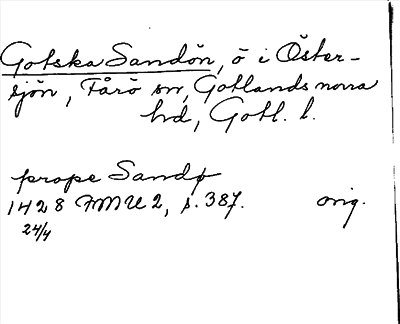 Gotska Sandön, ö i Öster-
sjön, Fårö sn, Gotlands norra
hd, Gotl. l.
prope Sandø
1428 FMU 2, s. 387. orig.
24/4